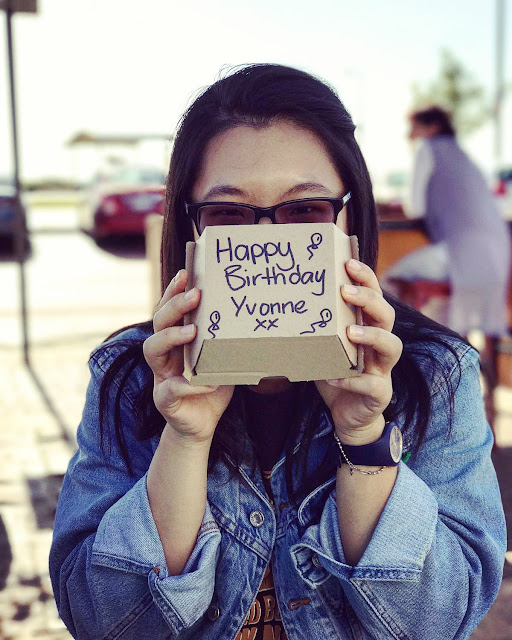 Happy
Birthday
Yvonne
xx